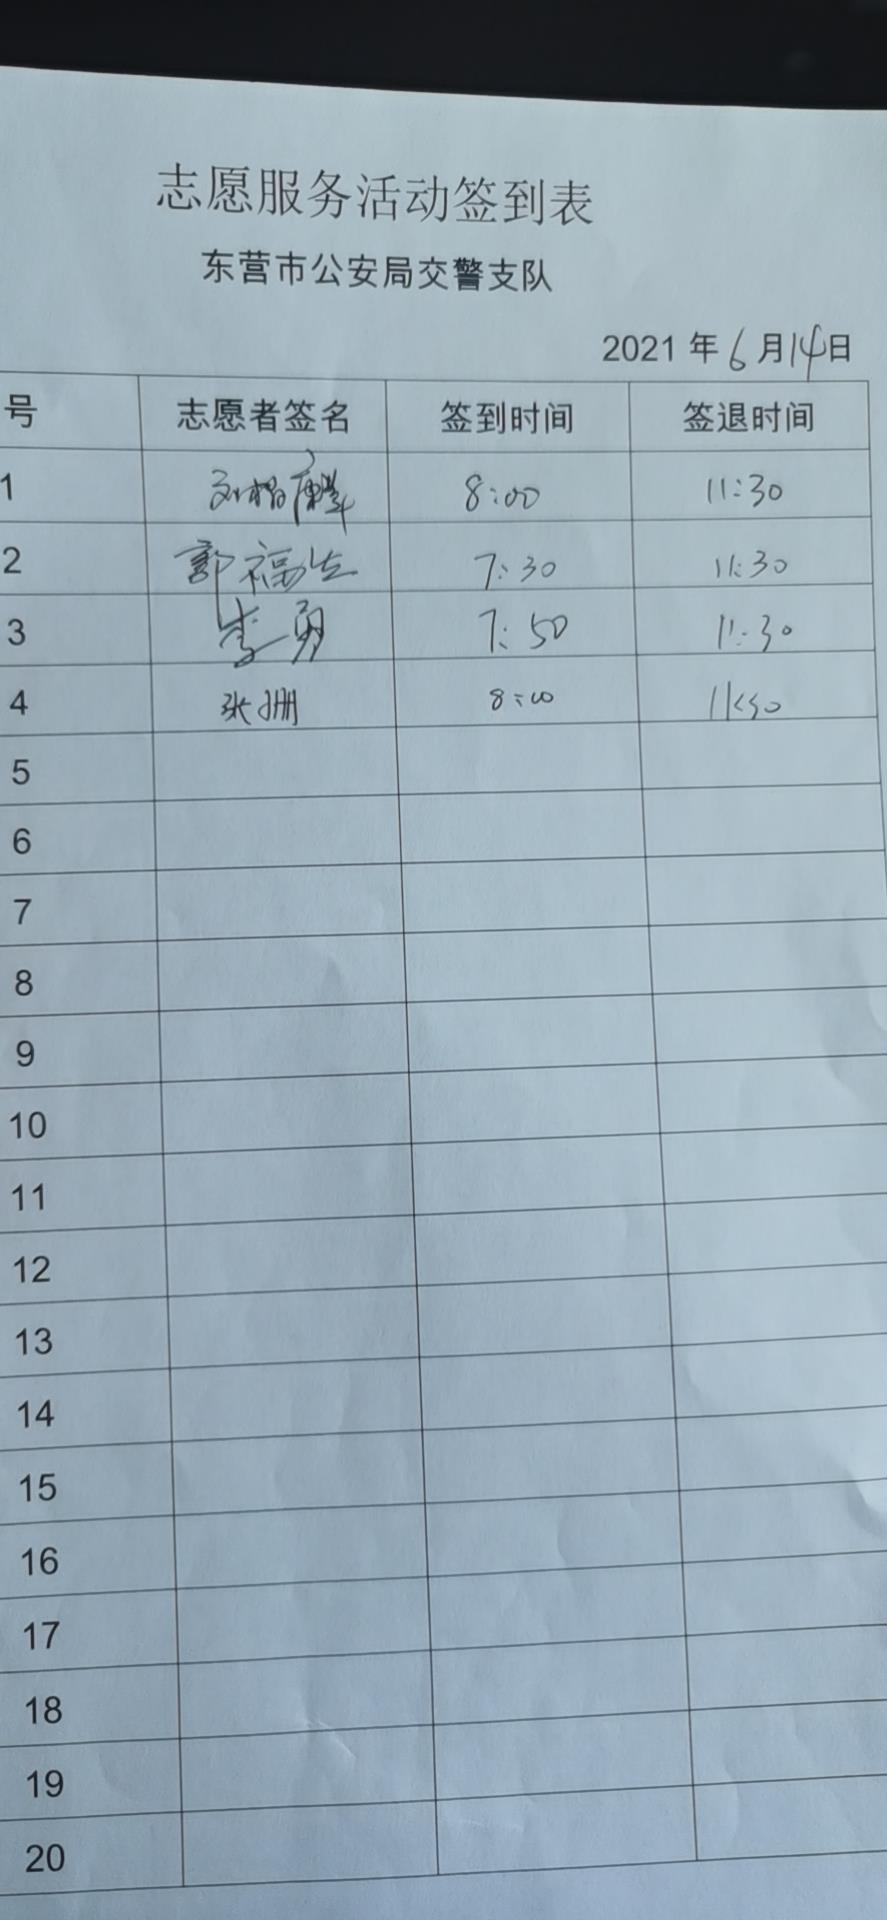 志愿服务活动签到表
东营市公安局交警支队
2021 年 6 月 14 日
号 志愿者签名 签到时间 签退时间
1 8:00 11:30
2 郭福生 7:30 11:30
3 李勇 7:50 11:30
4 张姗 8:00
5
6
7
8
9
10
11
12
13
14
15
16
17
18
19
20